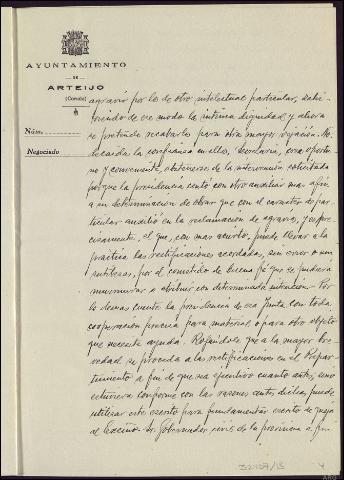 AYUNTAMIENTO
DE
ARTEIJO
(Coruña)
Núm.
Negociado
agravio por lo de otro intelectual particular, 
de ese modo la íntima dignidad y ahora
se pretende recabarlo para otra mayor 
decaída la confianza en ellos, secretario, cree oportu-
no y conveniente, abstenerse de la intervención solicitada
porque la presidencia cuenta con otro auxiliar mas afin
a su determinacion de obrar que con el caracter de par-
ticular auxilió en la reclamación de agravio, y es pre-
cisamente, el que, con mas acierto, puede llevar a la
practica las rectificaciones acordadas, sin error o sin
sutilezas, por el cometido de buena fé que se pudiera
o atribuir con determinada intención. Por
lo demas cuente la presidencia de esa Junta con toda
cooperación precisa para material o para otro objeto
que necesite ayuda. Rogándole que a la mayor bre-
vedad se proceda a las rectificaciones en el Repar-
timiento a fin de que sea ejecutivo cuanto antes, y si no
estuviera conforme con las razones antes dichas, puede
utilizar este escrito para fundamentar escrito de queja
al Excmo. Sr. Gobernador civil de la provincia a fin
32107/13
4